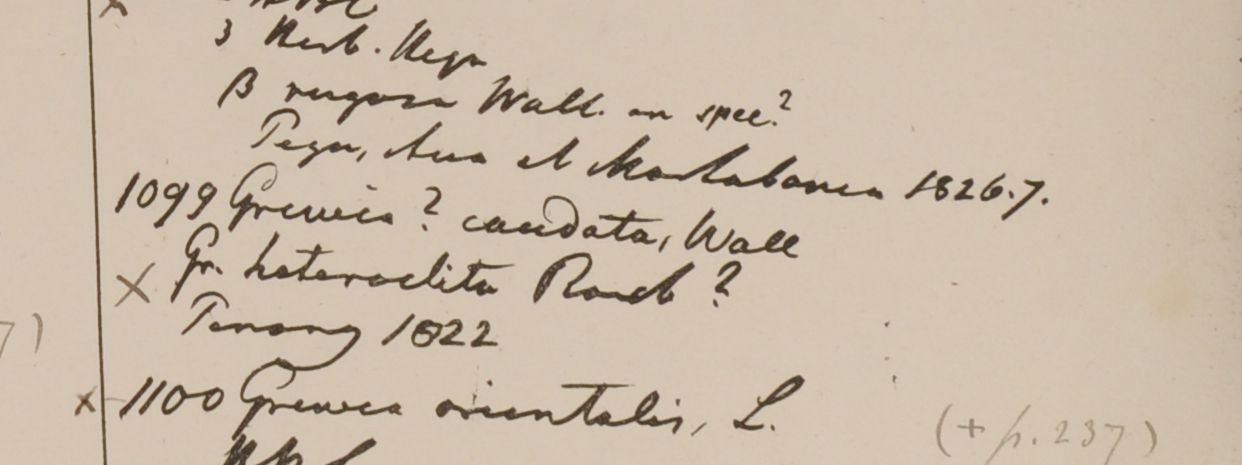 3 Herb. Heyn
β rugosa Wall. an spec.?
Pegu, Ava et Martabania 1826.7.
1099 Grewia? caudata, Wall
× Gr. heteroclita Roxb?
Penang 1822
× 1100 Grewia orientalis, L.
(+ p. 237)